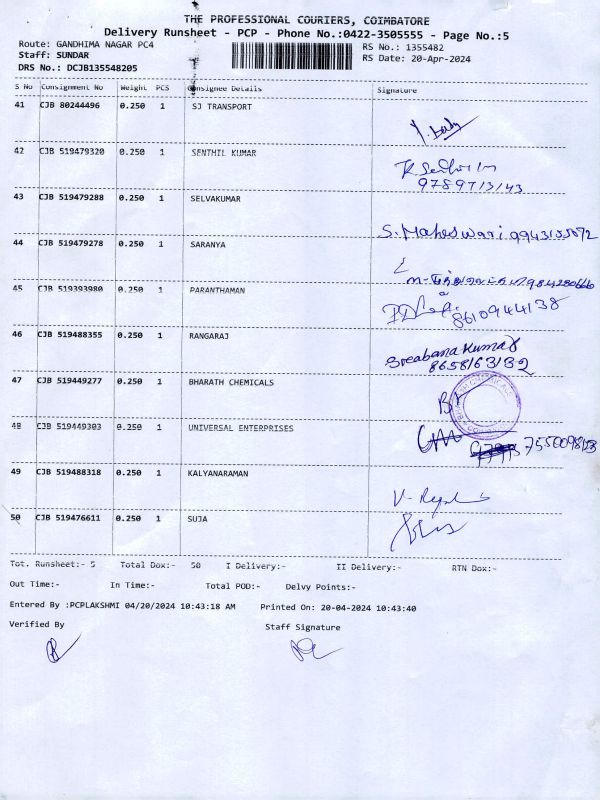 THE PROFESSIONAL COURIERS, COIMBATORE
Delivery Runsheet - PCP - Phone No.:0422-3505555 - Page No.:5
Route: GANDHIMA NAGAR PC4 RS No.: 1355482
Staff: SUNDAR RS Date: 20-Apr-2024
DRS No.: DCJB135548205
S No Consignment No Weight PCS Consignee Details Signature
41 CJB 80244496 0.250 1 SJ TRANSPORT
42 CJB 519479320 0.250 1 SENTHIL KUMAR
9789713143
43 CJB 519479288 0.250 1 SELVAKUMAR
S. Maheswari
44 CJB 519479278 0.250 1 SARANYA
45 CJB 519393980 0.250 1 PARANTHAMAN
8610944138
46 CJB 519488355 0.250 1 RANGARAJ
Sreabana Kumar
8658163132
47 CJB 519449277 0.250 1 BHARATH CHEMICALS
48 CJB 519449303 0.250 1 UNIVERSAL ENTERPRISES
49 CJB 519488318 0.250 1 KALYANARAMAN
50 CJB 519476611 0.250 1 SUJA
Tot. Runsheet:- 5 Total Dox:- 50 I Delivery:- II Delivery:- RTN Dox:-
Out Time:- In Time:- Total POD:- Delvy Points:-
Entered By :PCPLAKSHMI 04/20/2024 10:43:18 AM Printed On: 20-04-2024 10:43:40
Verified By Staff Signature